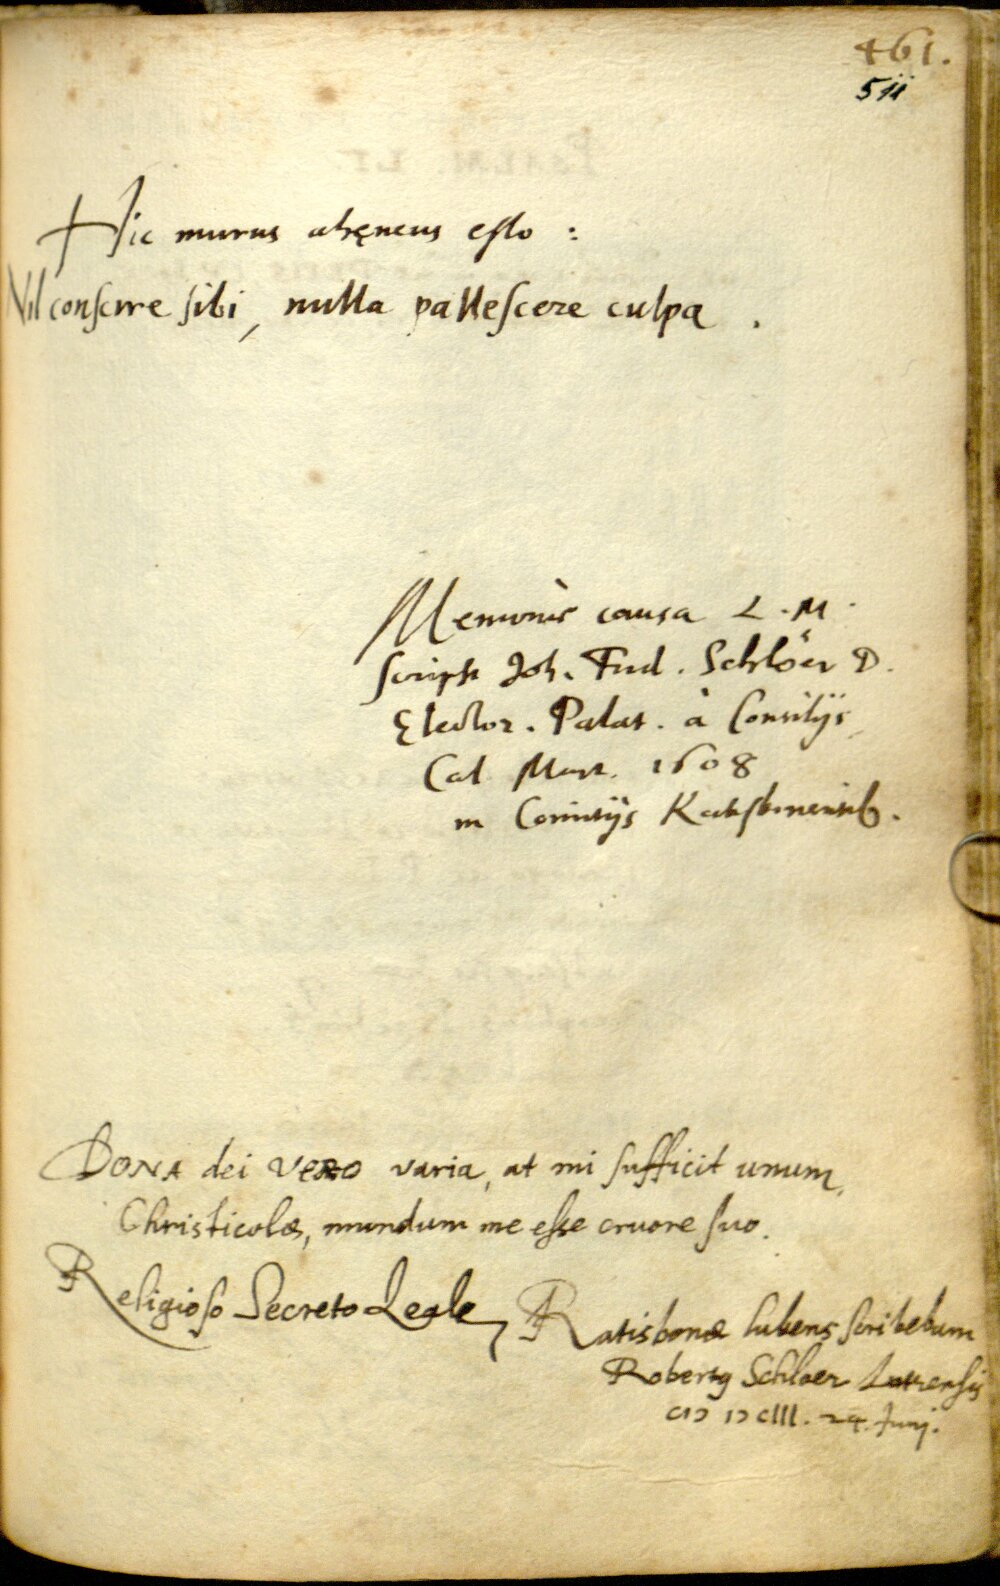 461.
511
Hic murus ahęneus esto :
Nil conscire sibi, nulla pallescere culpa .
Memoriæ causa L. M.
scripsit Joh. Frid. Schlöer D.
Elector. Palat. à Consilijs
Cal Mart. 1608
in Comitijs Ratisbonensib.
DONA dei VERO varia, at mi sufficit unum,
Christicolæ, mundum me esse cruore suo.
Religioso Secreto Leale,
Ratisbonæ lubens scribebam
Robertg Schloer
cIↃ IↃ cIII. 24. Junij.